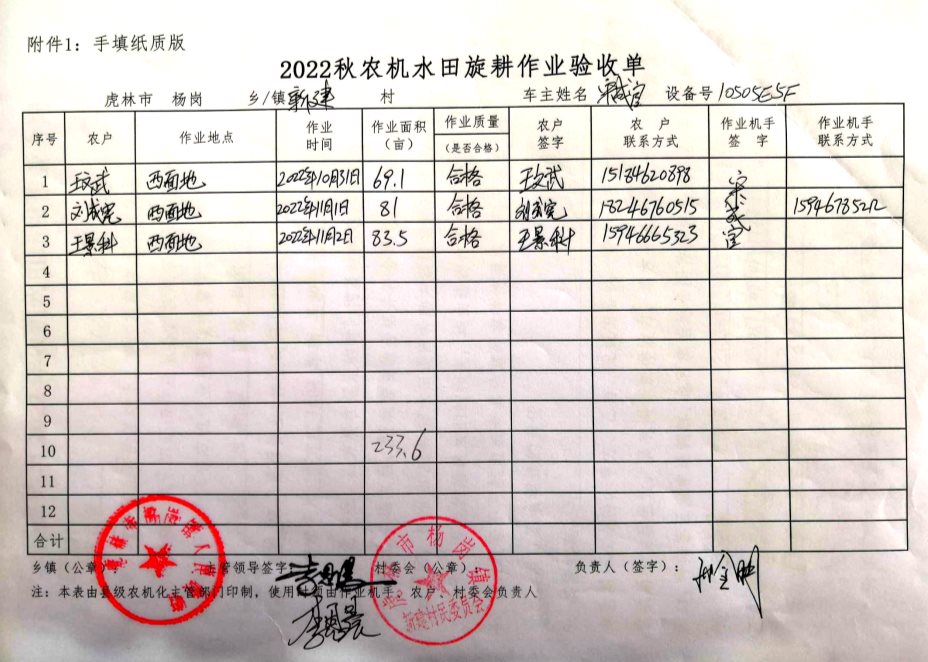 附件1：手填纸质版
2022秋农机水田旋耕作业验收单
虎林市 杨岗 乡/镇 新建 村 车主姓名 设备号 10505E5F
序号 农户 作业地点 作业时间 作业面积（亩） 作业质量（是否合格） 农户签字 农户联系方式 作业机手签字 作业机手联系方式
1 王文武 西面地 2022年10月31日 69.1 合格 王文武 15184620898
2 刘成宪 西面地 2022年11月1日 81 合格 刘成宪 18246760515 15946785212
3 王景科 西面地 2022年11月2日 83.5 合格 王景科 15946665323
4
5
6
7
8
9
10 233.6
11
12
合计
乡镇（公章）： 主管领导签字： 村委会（公章） 负责人（签字）：
注：本表由县级农机化主管部门印制，使用时须由作业机手、农户、村委会负责人
虎林市杨岗镇人民政府
虎林市杨岗镇
新建村民委员会